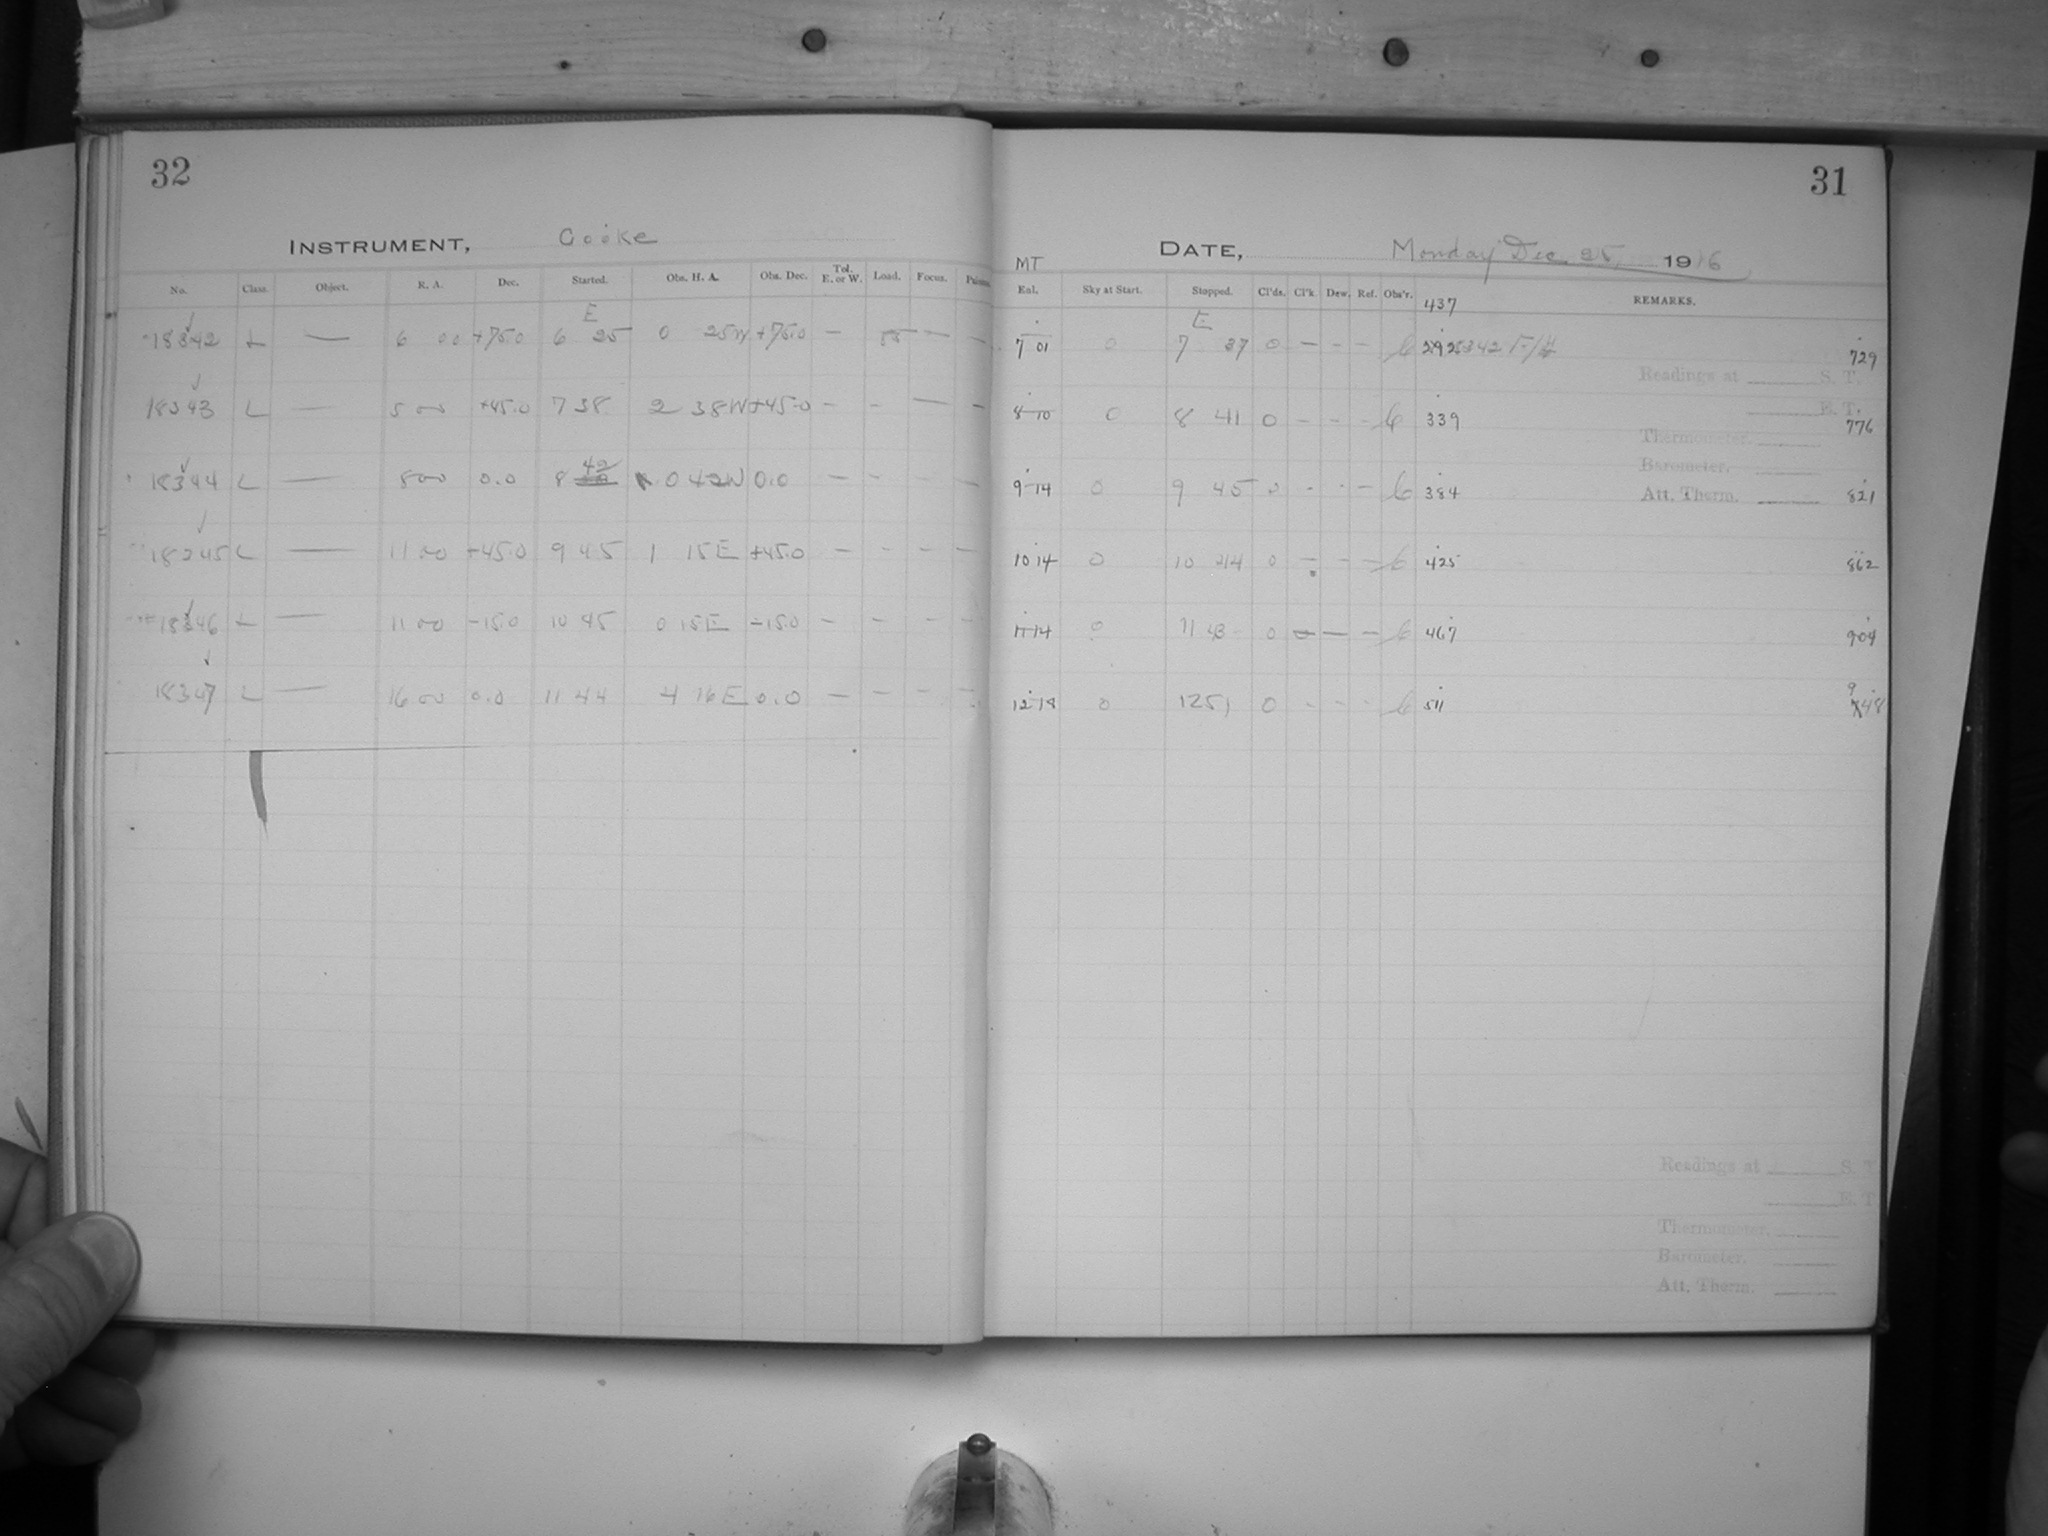 32
INSTRUMENT, Cooke
No. Class. Object. R. A. Dec. Started. Obs. H. A. Obs. Dec. Tel. E. or W. Load. Focus.
E
18342 L — 6 00 +75.0 6 25 0 25W +75.0 — — —
18343 L — 5 00 +45.0 7 38 2 38W +45.0 — - — —
42
18344 L — 8 00 0.0 8 0 42W 0.0 — - — —
18245 L — 11 00 +45.0 9 45 1 15E +45.0 — - — —
18346 L — 11 00 -15.0 10 45 0 15E -15.0 — - - -
18347 L — 16 00 0.0 11 44 4 16E 0.0 — - - —
31
DATE, Monday Dec. 25, 1916
MT
Eql. Sky at Start. Stopped. Cl'ds. Cl'k. Dew. Ref. Obs'r. 437 REMARKS.
E
7 01 0 7 37 0 — - - 729
Readings at S. T.
E. T.
8 10 0 8 41 0 - - - 339 776
Thermometer.
Barometer.
9 14 0 9 45 0 - - — 384 Att. Therm. 821
10 14 0 10 44 0 — - — 425 862
11 14 0 11 43 0 — — — 467 904
9
0 12 51 0 - - - 511 48
Readings at S. T.
E. T.
Thermometer.
Barometer.
Att. Therm.